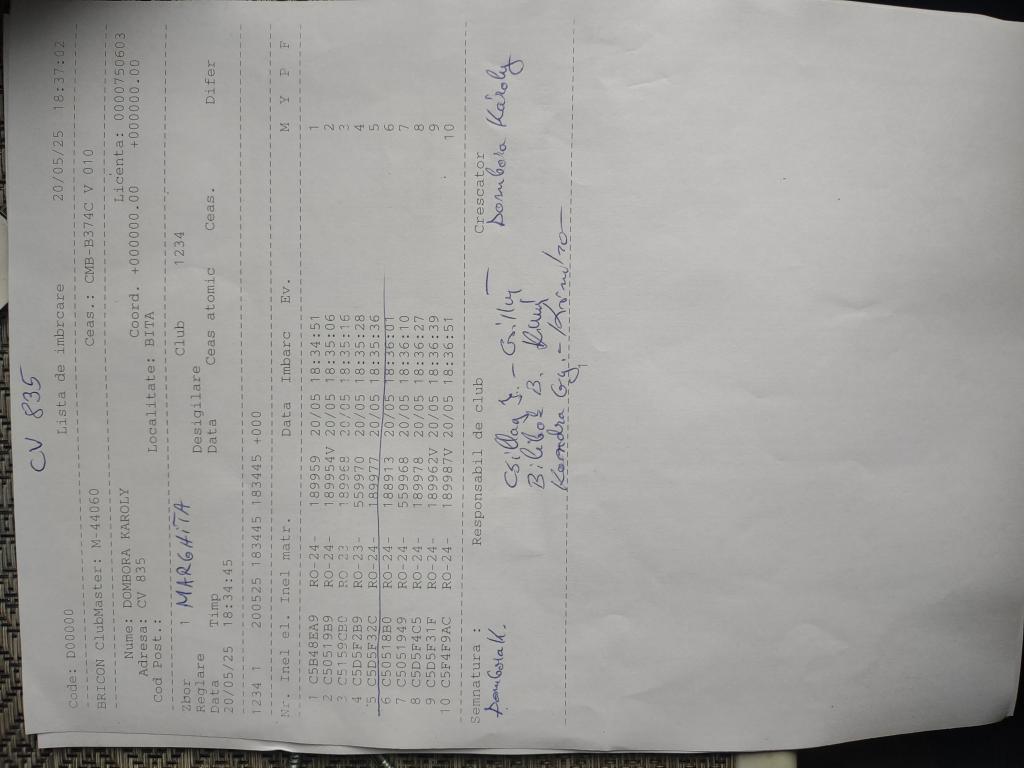 CV 835
Code: D00000 Lista de imbrcare 20/05/25 18:37:02
BRICON ClubMaster: M-44060 Ceas.: CMB-B374C V 010
Nume: DOMBORA KAROLY Licenta: 0000750603
Adresa: CV 835 Coord. +000000.00 +000000.00
Cod Post.: Localitate: BITA
Zbor 1 MARGHITA Club 1234
Reglare Desigilare
Data Timp Data Ceas atomic Ceas. Difer
20/05/25 18:34:45
1234 1 200525 183445 183445 +000
Nr. Inel el. Inel matr. Data Imbarc Ev. M Y P F
1 C5B48EA9 RO-24- 189959 20/05 18:34:51 1
2 C50519B9 RO-24- 189954V 20/05 18:35:06 2
3 C5159CBC RO-23- 189968 20/05 18:35:16 3
4 C5D5F2B9 RO-23- 559970 20/05 18:35:28 4
5 C5D5F32C RO-24- 189977 20/05 18:35:36 5
6 C50518B0 RO-24- 188913 20/05 18:36:01 6
7 C5051949 RO-24- 559968 20/05 18:36:10 7
8 C5D5F4C5 RO-24- 189978 20/05 18:36:27 8
9 C5D5F31F RO-24- 189962V 20/05 18:36:39 9
10 C5F4F9AC RO-24- 189987V 20/05 18:36:51 10
Semnatura : Responsabil de club Crescator
Dombora K. Csillag J. - Dombora Károly
Bilibok B.
Kondra Gy. -